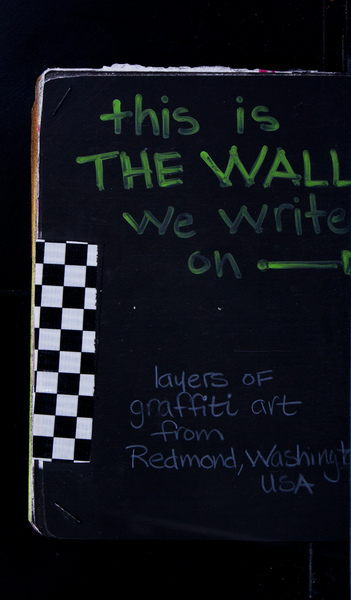 this is
THE WALL
we write
on
layers of
graffiti art
from
Redmond, Washingt
USA